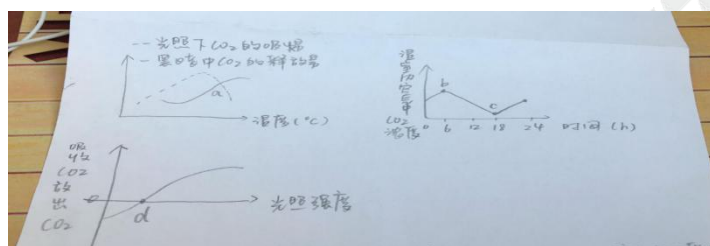 -- 光照下CO2的吸收量
— 黑暗中CO2的释放量
a
温度(°C)
温室内空气中CO2浓度
b
c
0 6 12 18 24 时间(h)
吸收CO2
放出CO2
d
光照强度